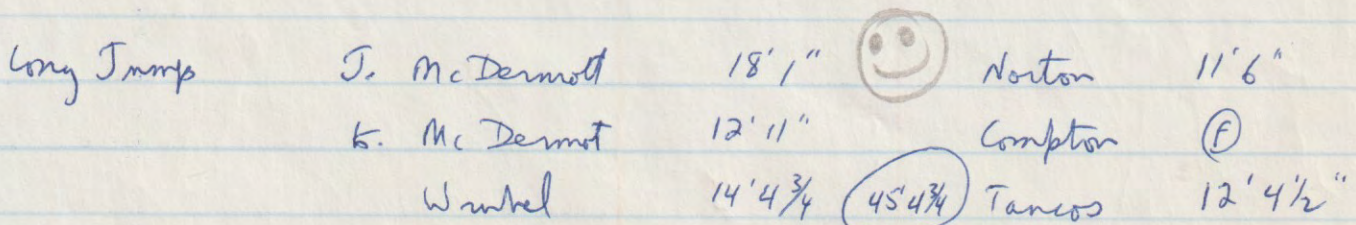 Long Jump J. McDermott 18'1" Norton 11'6"
K. McDermot 12'11" Compton F
Wrubel 14'4 3/4 45'4 3/4 Tancos 12'4 1/2"